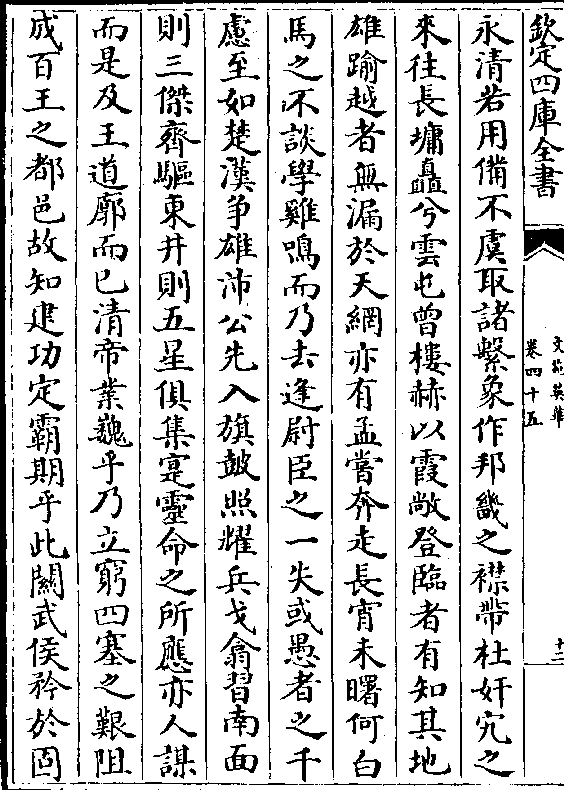 欽定四庫全書
文苑英華
卷四十五
十二
永清若用備不虞取諸繫象作邦畿之襟帶杜奸宄之
來往長墉矗兮雲屯曾樓赫以霞敞登臨者有知其地
雄踰越者無漏於天網亦有孟嘗奔走長宵未曙何白
馬之不談學雞鳴而乃去逢尉臣之一失或愚者之千
慮至如楚漢爭雄沛公先入旗皷照耀兵戈翕習南面
則三傑齊驅東井則五星俱集寔靈命之所應亦人謀
而是及王道廓而已清帝業巍乎乃立窮四塞之艱阻
成百王之都邑故知建功定霸期乎此關武侯矜於固